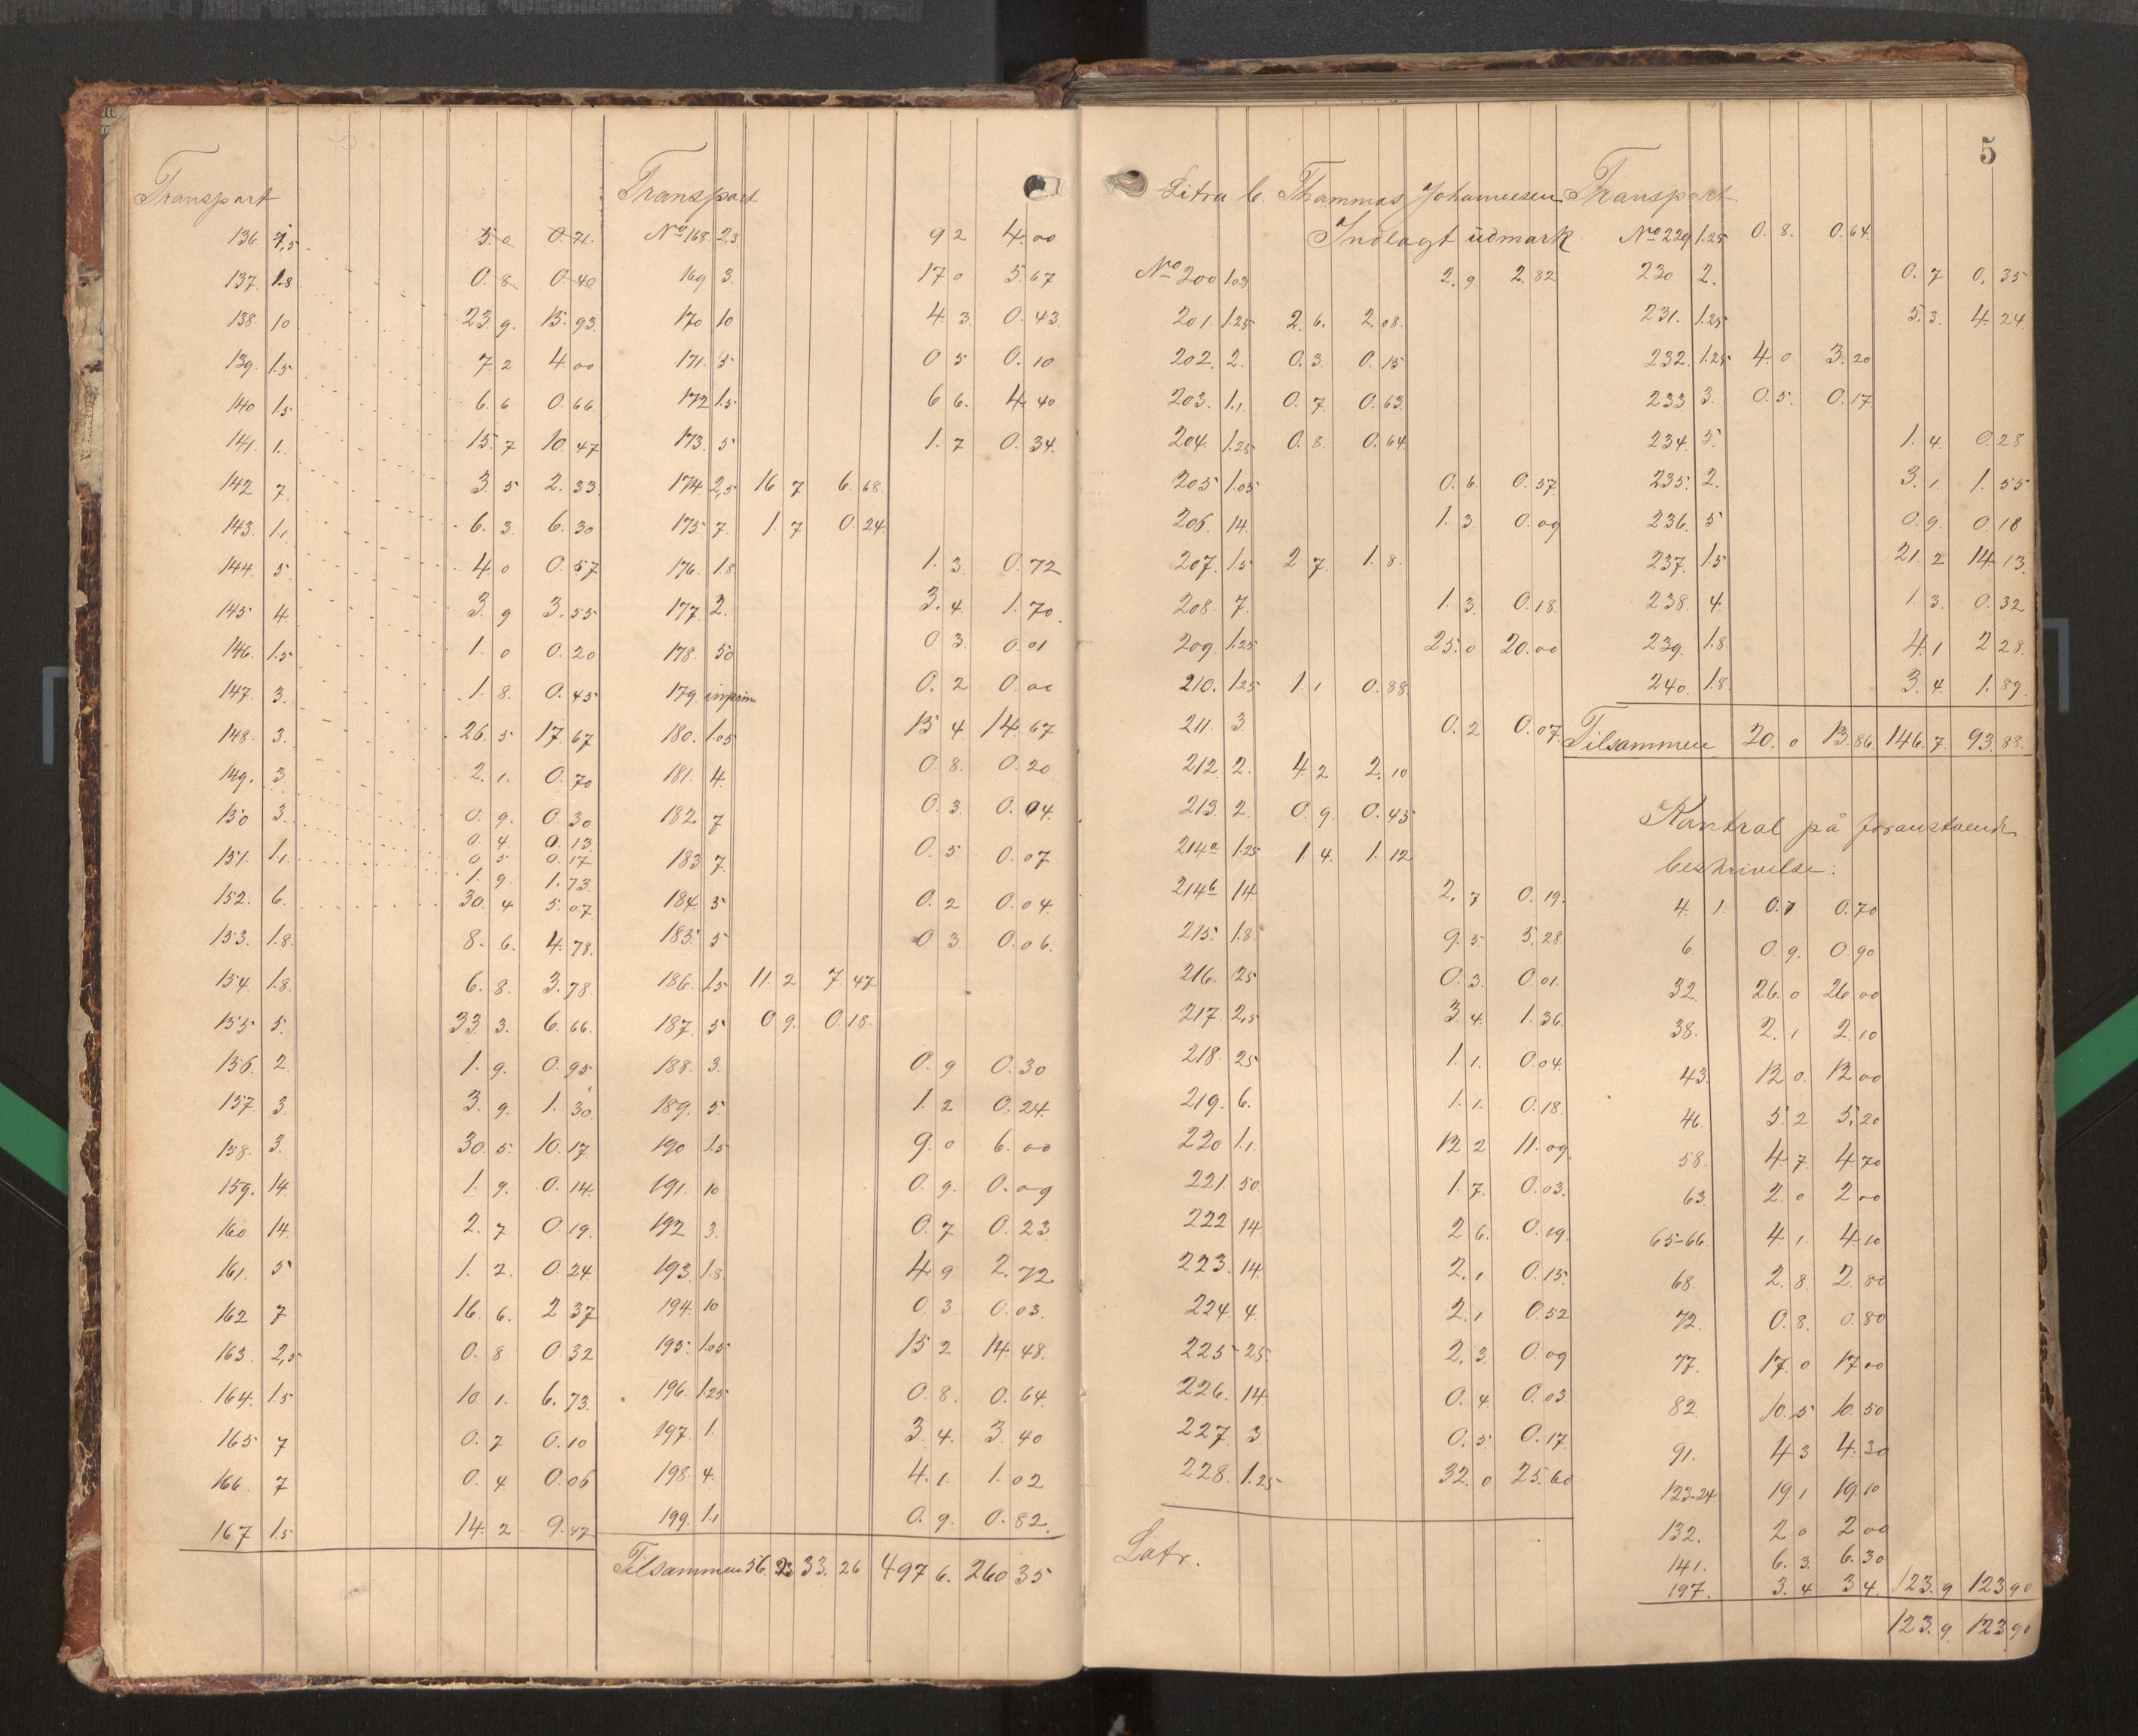 5
Transport
136 7,5 5.0 0.71.
137. 1.8 0.8 0.40
138. 10 23.9. 15.93.
139. 1.5 7 2 4.00
140 1.5 6.6 0.66
141. 1. 15.7 10.47
142 7. 3.5 2.33.
143. 1.1 6.3. 6.30
144. 5. 4.0 0.57
145 4. 3.9 3.55
146. 1.5 1.0 0.20
147. 3. 1.8. 0.45
148. 3. 26.5 17.67
149. 3. 2.1. 0.70
150 3. 0.9. 0.30
0.4 0.13
0 5 0.17
151. 1.1 1.9. 1.73.
152. 6. 30.4 5.07
153. 1.8. 8.6. 4.78.
154. 1.8. 6.8. 3.78
155 5. 33.3. 6.66.
156. 2 1.9. 0.95
157. 3. 3.9. 1.30
158. 3. 30.5. 10.17.
159. 14. 1.9. 0.14.
160 14. 2.7 0.19.
161. 5 1.2. 0.24
162 7 16.6. 2 37
163. 2,5 0.8 0.32
164. 1.5 10 1. 6.73.
165 7 0.7 0.10
166. 7 0.4 0.06
167 1.5 14.2 9.47
Transport
No 168. 2,3 9 2 4.00
169 3. 17 0 5.67
170 10 4.3. 0.43.
171. 5 0 5 0.10
172 1.5 6 6. 4.40
173. 5 1.7 0.34.
174. 2,5 16 7 6.68.
175 7. 1.7 0.24
176. 1.8. 1.3. 0.72
177 2. 3.4 1.70.
178. 50 0 3. 0.01
179 0.2 0.00
180. 1.05 15 4 14.67
181. 4. 0.8. 0.20
182. 7 0.3. 0.04.
183 7. 0.5 0.07
184. 5 0.2 0.04.
185. 5 0 3. 0.06.
186. 1.5 11.2 7.47
187. 5 0 9. 0.18.
188. 3. 0.9 0.30
189. 5. 1.2 0.24
190 1.5 9.0 6.00
191. 10 0.9. 0.09
192 3. 0.7 0.23.
193. 1.8. 4 9. 2.72
194. 10 0.3. 0.03.
195. 1.05 15 2 14.48.
196. 1.25 0.8. 0.64.
197. 1. 3.4. 3.40
198. 4. 4.1. 1.02
199. 1.1 0.9. 0.82.
Tilsammen 56. 33. 26 497 6. 260 35
Litra C. Thammas Johannesen
Indlagt udmark
No 200 1.03 2.9 2.82
201. 1.25 2.6. 2.08.
202. 2. 0.3. 0.15
203. 1.1. 0.7. 0.63.
204. 1.25 0.8. 0.64.
205 1.05 0.6. 0.57.
206. 14. 1.3. 0.09
207. 1.5 2 7. 1.8.
208. 7. 1.3. 0.18.
209. 1.25 25.0 20.00
210. 1.25 1.1 0.88.
211. 3. 0.2 0.07.
212. 2. 4 2 2.10
213. 2. 0.9. 0.45
214a 1.25 1.4. 1.12
214b 14. 2.7 0.19.
215. 1.8. 9.5 5.28
216. 25 0.3. 0.01.
217. 2,5 3.4. 1.36.
218. 25 1.1. 0.04.
219. 6. 1.1. 0.18.
220 1.1. 12 2 11.09.
221. 50. 1.7. 0.03.
222 14. 2 6. 0.19.
223. 14. 2.1 0.15.
224 4. 2.1 0.52
225 25. 2.3. 0.09
226. 14. 0.4 0.03
227. 3. 0.5. 0.17.
228. 1.25 32.0 25.60
Latr.
Transport
No 229 1.25 0.8. 0.64.
230 2. 0.7 0.35
231. 1.25 5.3. 4.24.
232. 1.25 4.0 3.20
233 3. 0.5. 0.17.
234. 5. 1.4. 0.28
235. 2. 3.1. 1.55
236. 5 0.9. 0.18
237. 1.5 21.2 14 13.
238. 4. 1.3. 0.32
239. 1.8. 4.1 2 28.
240. 1.8. 3.4. 1.89.
Tilsammen 20.0 13.86. 146.7. 93.88.
Kontrol på foranstaende
beskrivelse:
4. 1. 0.7 0.70
6. 0.9. 0.90
32. 26.0 26.00
38. 2.1 2.10
43. 12 0. 12.00
46. 5.2 5.20
58. 4 7. 4.70
63. 2.0 2.00
65-66. 4.1. 4.10
68. 2.8. 2.80
72. 0.8. 0.80
77. 17.0 17.00
82. 10.5 10.50
91. 4 3 4.30
123-24. 19.1 19.10
132. 2 0 2.00
141. 6.3. 6.30
197. 3.4. 3 4. 123.9 123 90
123.9 123 90